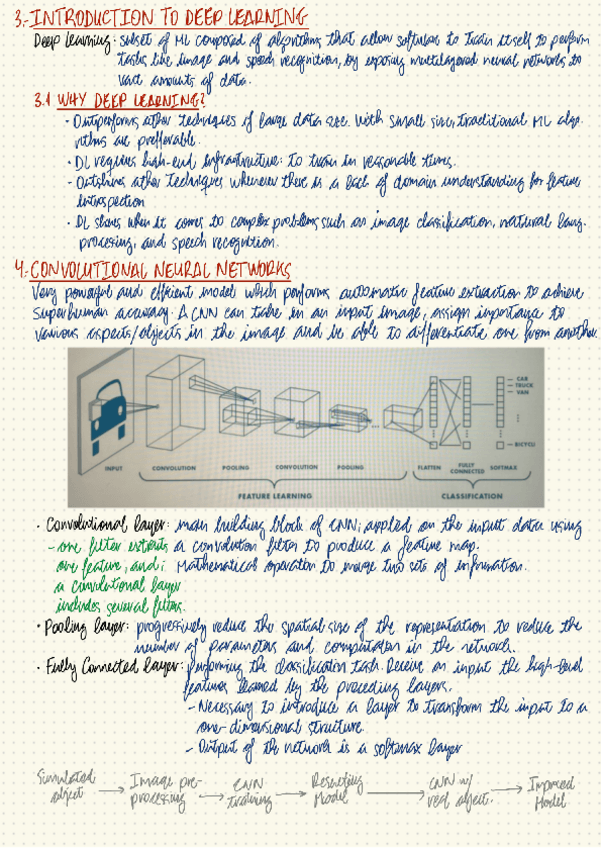 3.- INTRODUCTION TO DEEP LEARNING
Deep Learning: subset of ML composed of algorithms that allow software to train itself to perform
tasks like image and speech recognition, by exposing multilayered neural networks to
vast amounts of data.
3.1 WHY DEEP LEARNING?
· Outperforms other techniques if large data size. With small size, traditional ML algo-
rithms are prefferable.
· DL requires high-end infrastructure: to train in reasonable times.
- Outshines other techniques whenever there is a lack of domain understanding for feature
introspection
· DL shines when it comes to complex problems such as image classification, natural lang.
processing, and speech recognition.
4.- CONVOLUTIONAL NEURAL NETWORKS
Very powerful and efficient model which performs automatic feature extraction to achieve
superhuman accuracy. A CNN can take in an input image, assign importance to
various aspects/objects in the image and be able to differentiate one from another.
CAR
TRUCK
VAN
BICYCLE
INPUT CONVOLUTION POOLING CONVOLUTION POOLING FLATTEN FULLY CONNECTED SOFTMAX
FEATURE LEARNING CLASSIFICATION
· Convolutional layer: main building block of CNN; applied on the input data using
- one filter extracts a convolution filter to produce a feature map.
one feature, and Mathematical operation to merge two sets of information.
a convolutional layer
includes several filters.
· Pooling layer: progressively reduce the spatial size of the representation to reduce the
number of parameters and computation in the network.
· Fully Connected Layer: performing the classification task. Receive as input the high-level
features learned by the preceding layers.
- Necessary to introduce a layer to transform the input to a
one-dimensional structure.
- Output of the network is a softmax layer
Simulated object → Image pre-processing → CNN training → Resulting Model → CNN w/ real object. → Improved Model